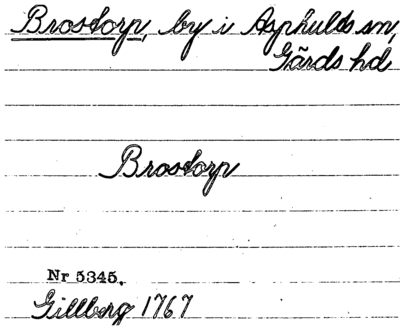 Brostorp, by i Asphults sn,
Gärds hd
Brostorp
Nr 5345.
Gillberg 1767